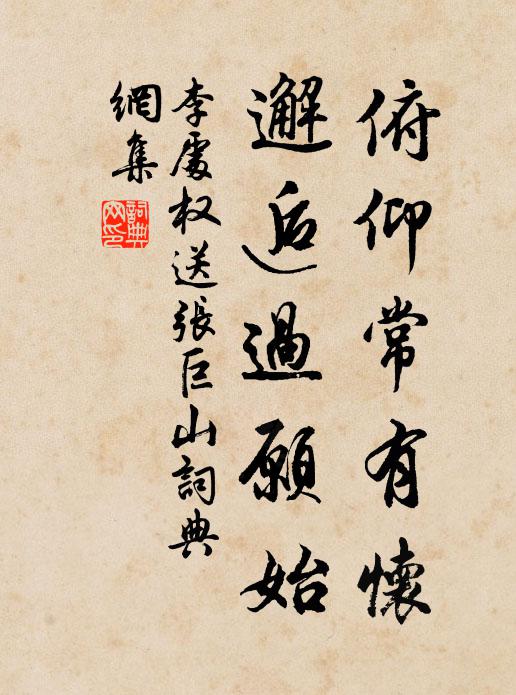 俯仰常有懷
邂逅過願始
李處权送張巨山詞典
網集
詞典
网印